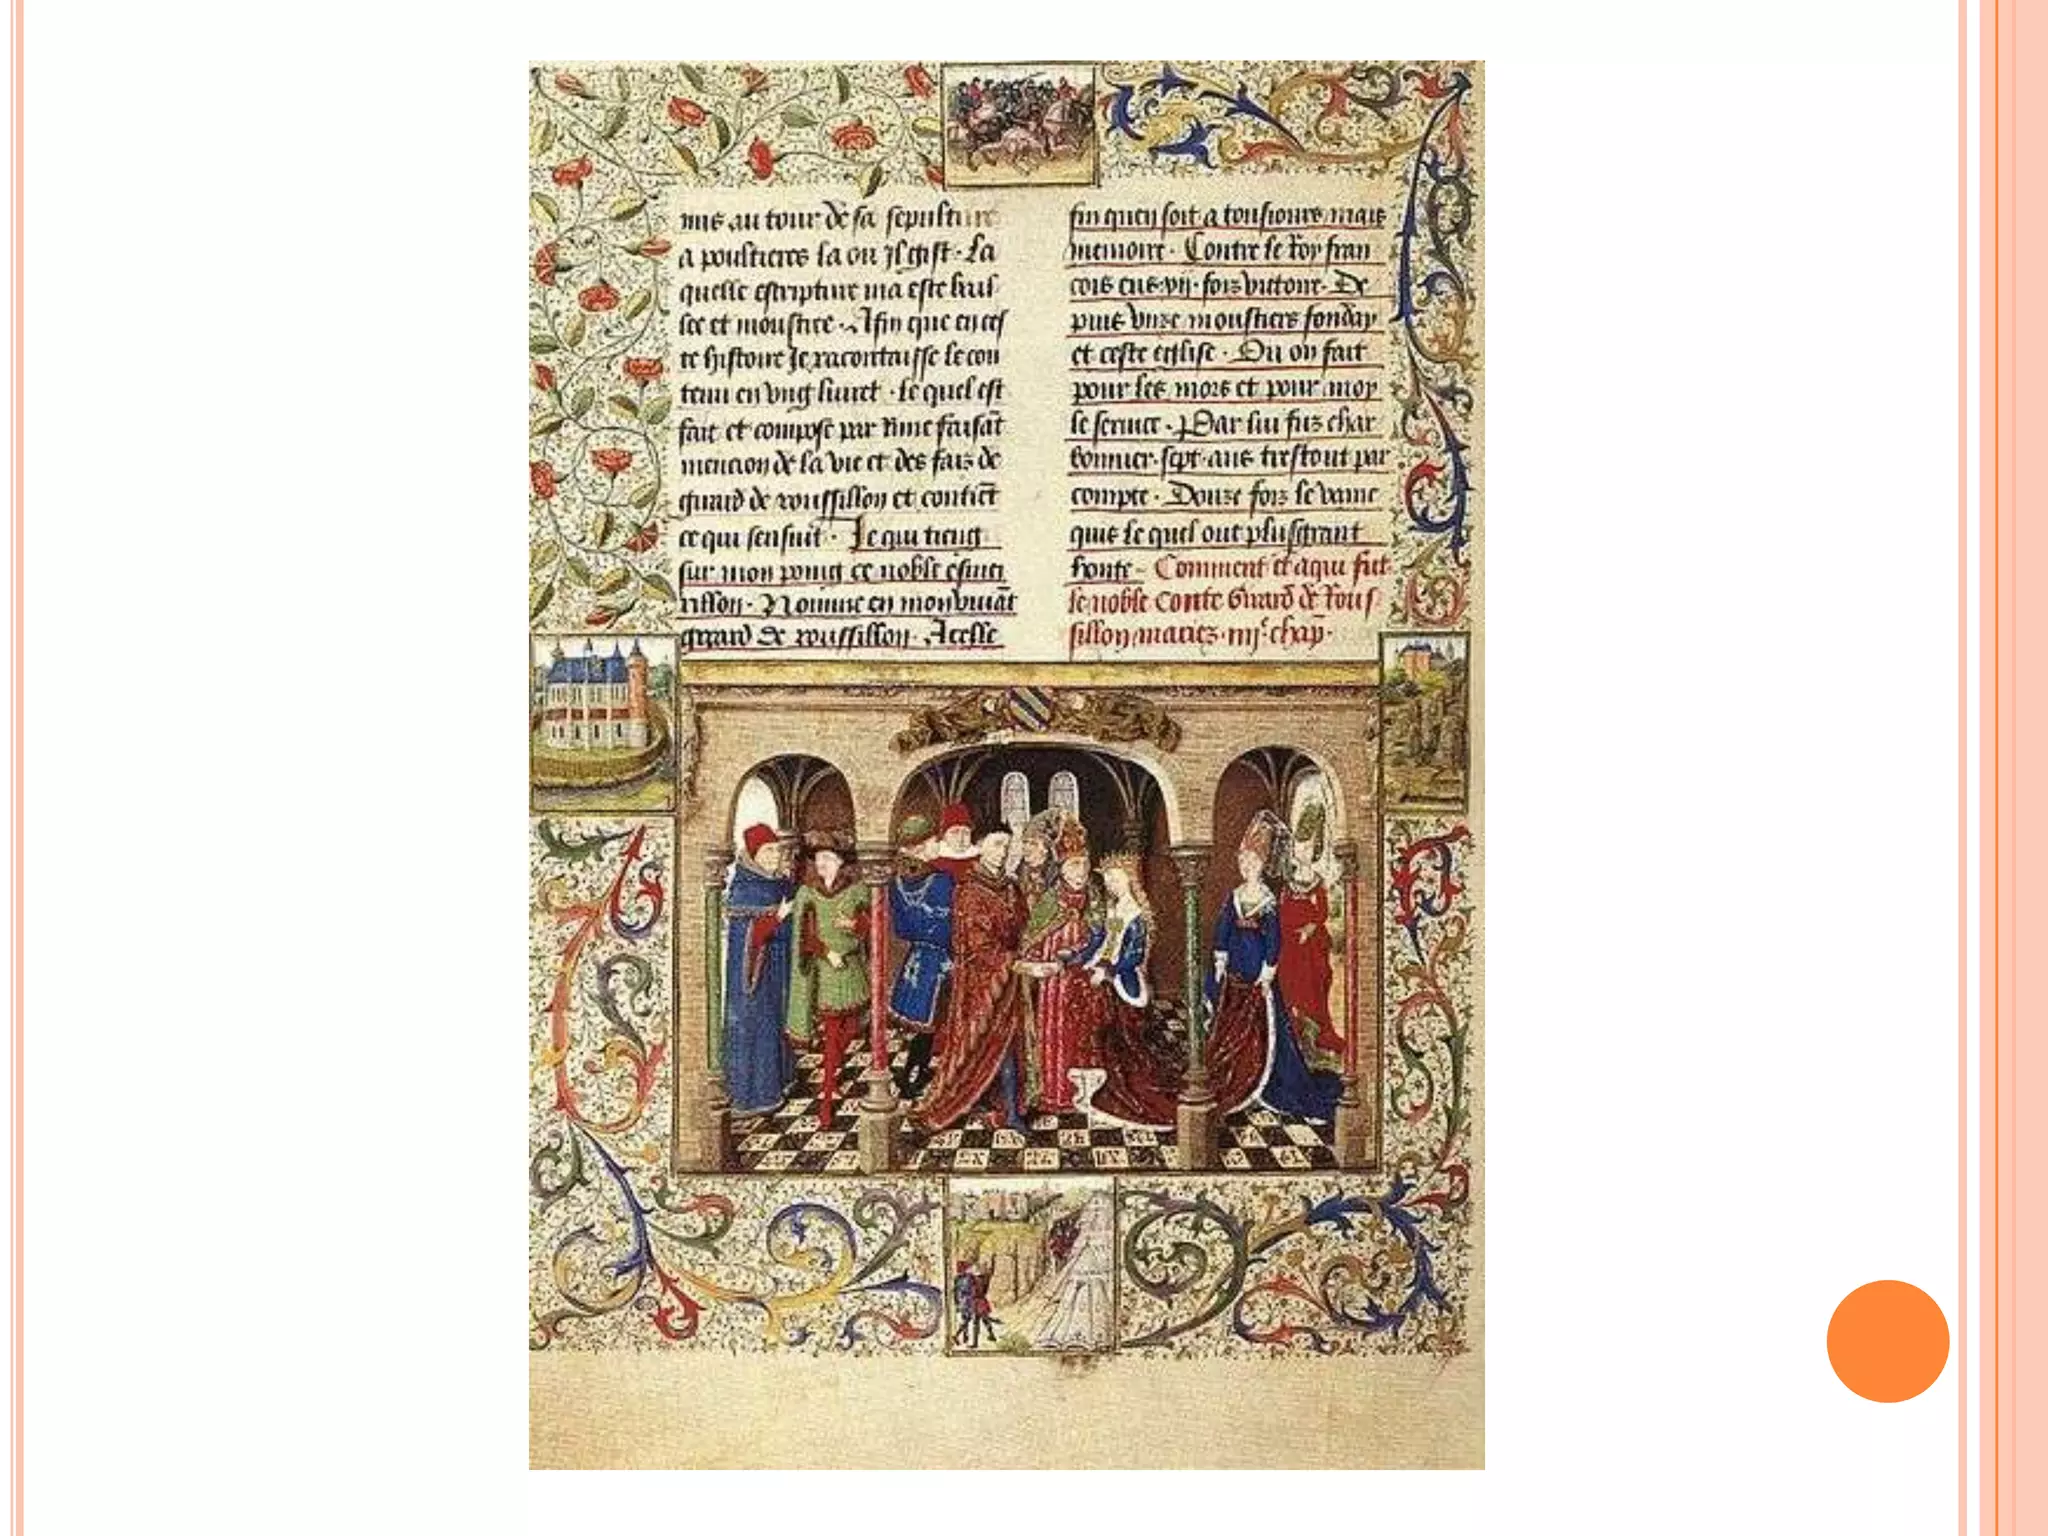 mis au tour de sa sepulture
a poultieres la ou il gist · La
quelle escripture ma este bail
lee et monstree · Afin que en ces
te histoire Je racontaisse le con
tenu en ung livret · le quel est
fait et compose par Rime faisāt
mencion de la vie et des fais de
gerard de roussillon et contiēt
ce qui sensuit · Je qui tieng
sur mon poing ce noble esmer
rillon · Nomme en mon vivāt
gerard de roussillon · A ceste
fin quen soit a tousiours mais
memoire · Contre le Roy fran
cois eus vij fois victoire · De
puis unze moustiers fonday
et ceste eglise · Ou on fait
pour les mors et pour moy
le service · Par lui fus char
bonnier sept ans trestout par
compte · Douze fois le vainc
quis le quel out plus grant
honte · Comment et a qui fut
le noble conte Gerard de Rous
sillon mariez · iiijᵉ chap̄ ·